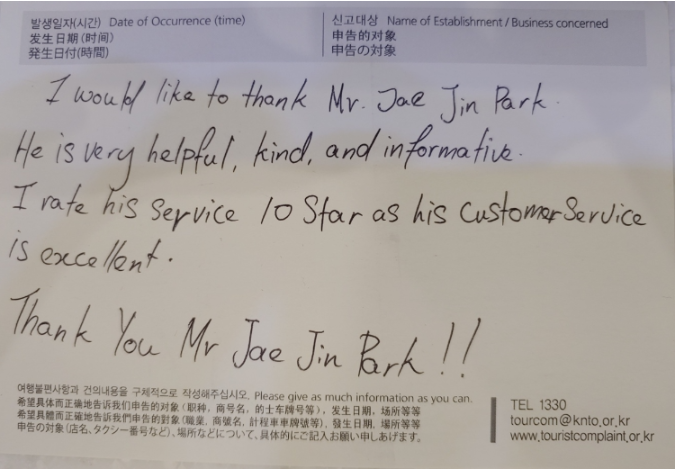 발생일자(시간) Date of Occurrence (time)
发生日期(时间)
発生日付(時間)
신고대상 Name of Establishment / Business concerned
申告的对象
申告の対象
I would like to thank Mr. Jae Jin Park.
He is very helpful, kind, and informative.
I rate his service 10 Star as his Customer Service
is excellent.
Thank You Mr Jae Jin Park!!
여행불편사항과 건의내용을 구체적으로 작성해주십시오. Please give as much information as you can.
希望具体而正确地告诉我们申告的对象(职种, 商号名, 的士车牌号等), 发生日期, 场所等等
希望具體而正確地告訴我們申告的對象(職業, 商號名, 計程車車牌號等), 發生日期, 場所等等
申告の対象(店名、タクシー番号など)、場所などについて、具体的にご記入お願い申しあげます。
TEL 1330
tourcom@knto.or.kr
www.touristcomplaint.or.kr